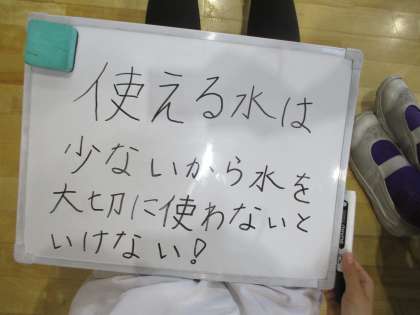 使える水は
少ないから水を
大切に使わないと
いけない!